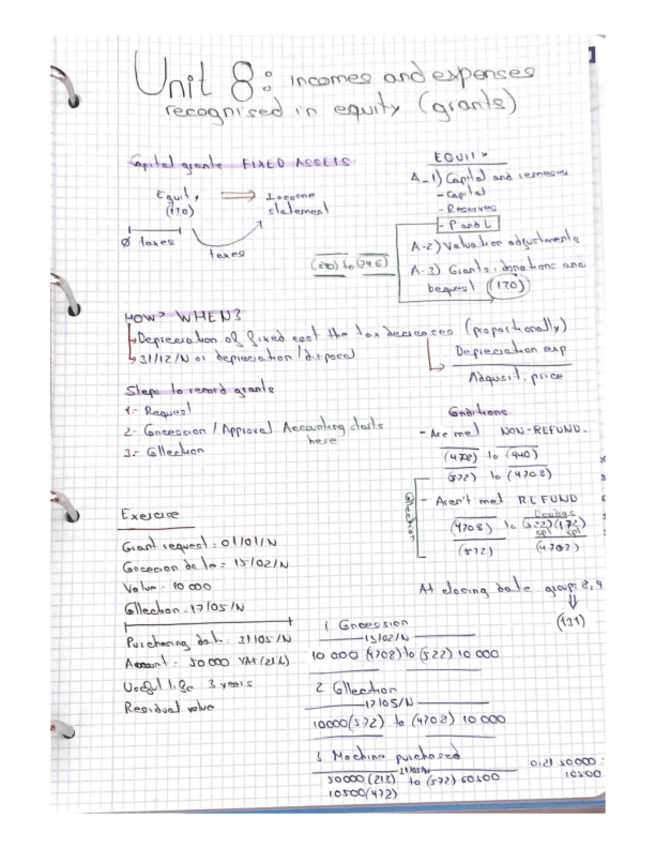 Unit 8: incomes and expenses
recognised in equity (grants)
Capital grants FIXED ASSETS
Equity ⇒ Income
(130) statement
Ø taxes
taxes
EQUITY
A-1) Capital and reserves
- Capital
- Reserves
- P and L
A-2) Valuation adjustments
A-3) Grants, donations and
bequest (130)
to (746)
HOW? WHEN?
Depreciation of fixed the tax decreases (proporthonally)
31/12/N or depreciation/disposal
Depreciation exp
Adqusit. price
Steps to record grants
1- Request
2- Concession / Approval Accounting starts
here
3- Collection
Conditions
- Are met NON-REFUND.
(4708) to (940)
(572) to (4708)
- Aren't met REFUND
Collection
(4708) to (522)(172)
(572) (4708)
Exercise
Grant request: 01/01/N
Concesion date: 15/02/N
Value: 10 000
Collection: 17/05/N
Purchasing dat: 31/05/N
Amount: 50 000 VAT (21%)
Useful life 3 years
Residual value
At closing date groups 8, 9
⇓
(131)
1 Concession
15/02/N
10 000 (4708) to (522) 10 000
2 Collection
17/05/N
10000 (572) to (4708) 10 000
3 Machine purchased
31/05/N
50000 (213) to (572) 60500
10500 (472)
0,21 · 50000 =
10500